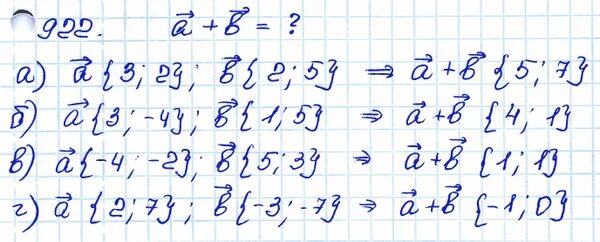 922. a⃗ + b⃗ = ?
а) a⃗ {3; 2}; b⃗ {2; 5} ⇒ a⃗ + b⃗ {5; 7}
б) a⃗ {3; -4}; b⃗ {1; 5} ⇒ a⃗ + b⃗ {4; 1}
в) a⃗ {-4; -2}; b⃗ {5; 3} ⇒ a⃗ + b⃗ {1; 1}
г) a⃗ {2; 7}; b⃗ {-3; -7} ⇒ a⃗ + b⃗ {-1; 0}